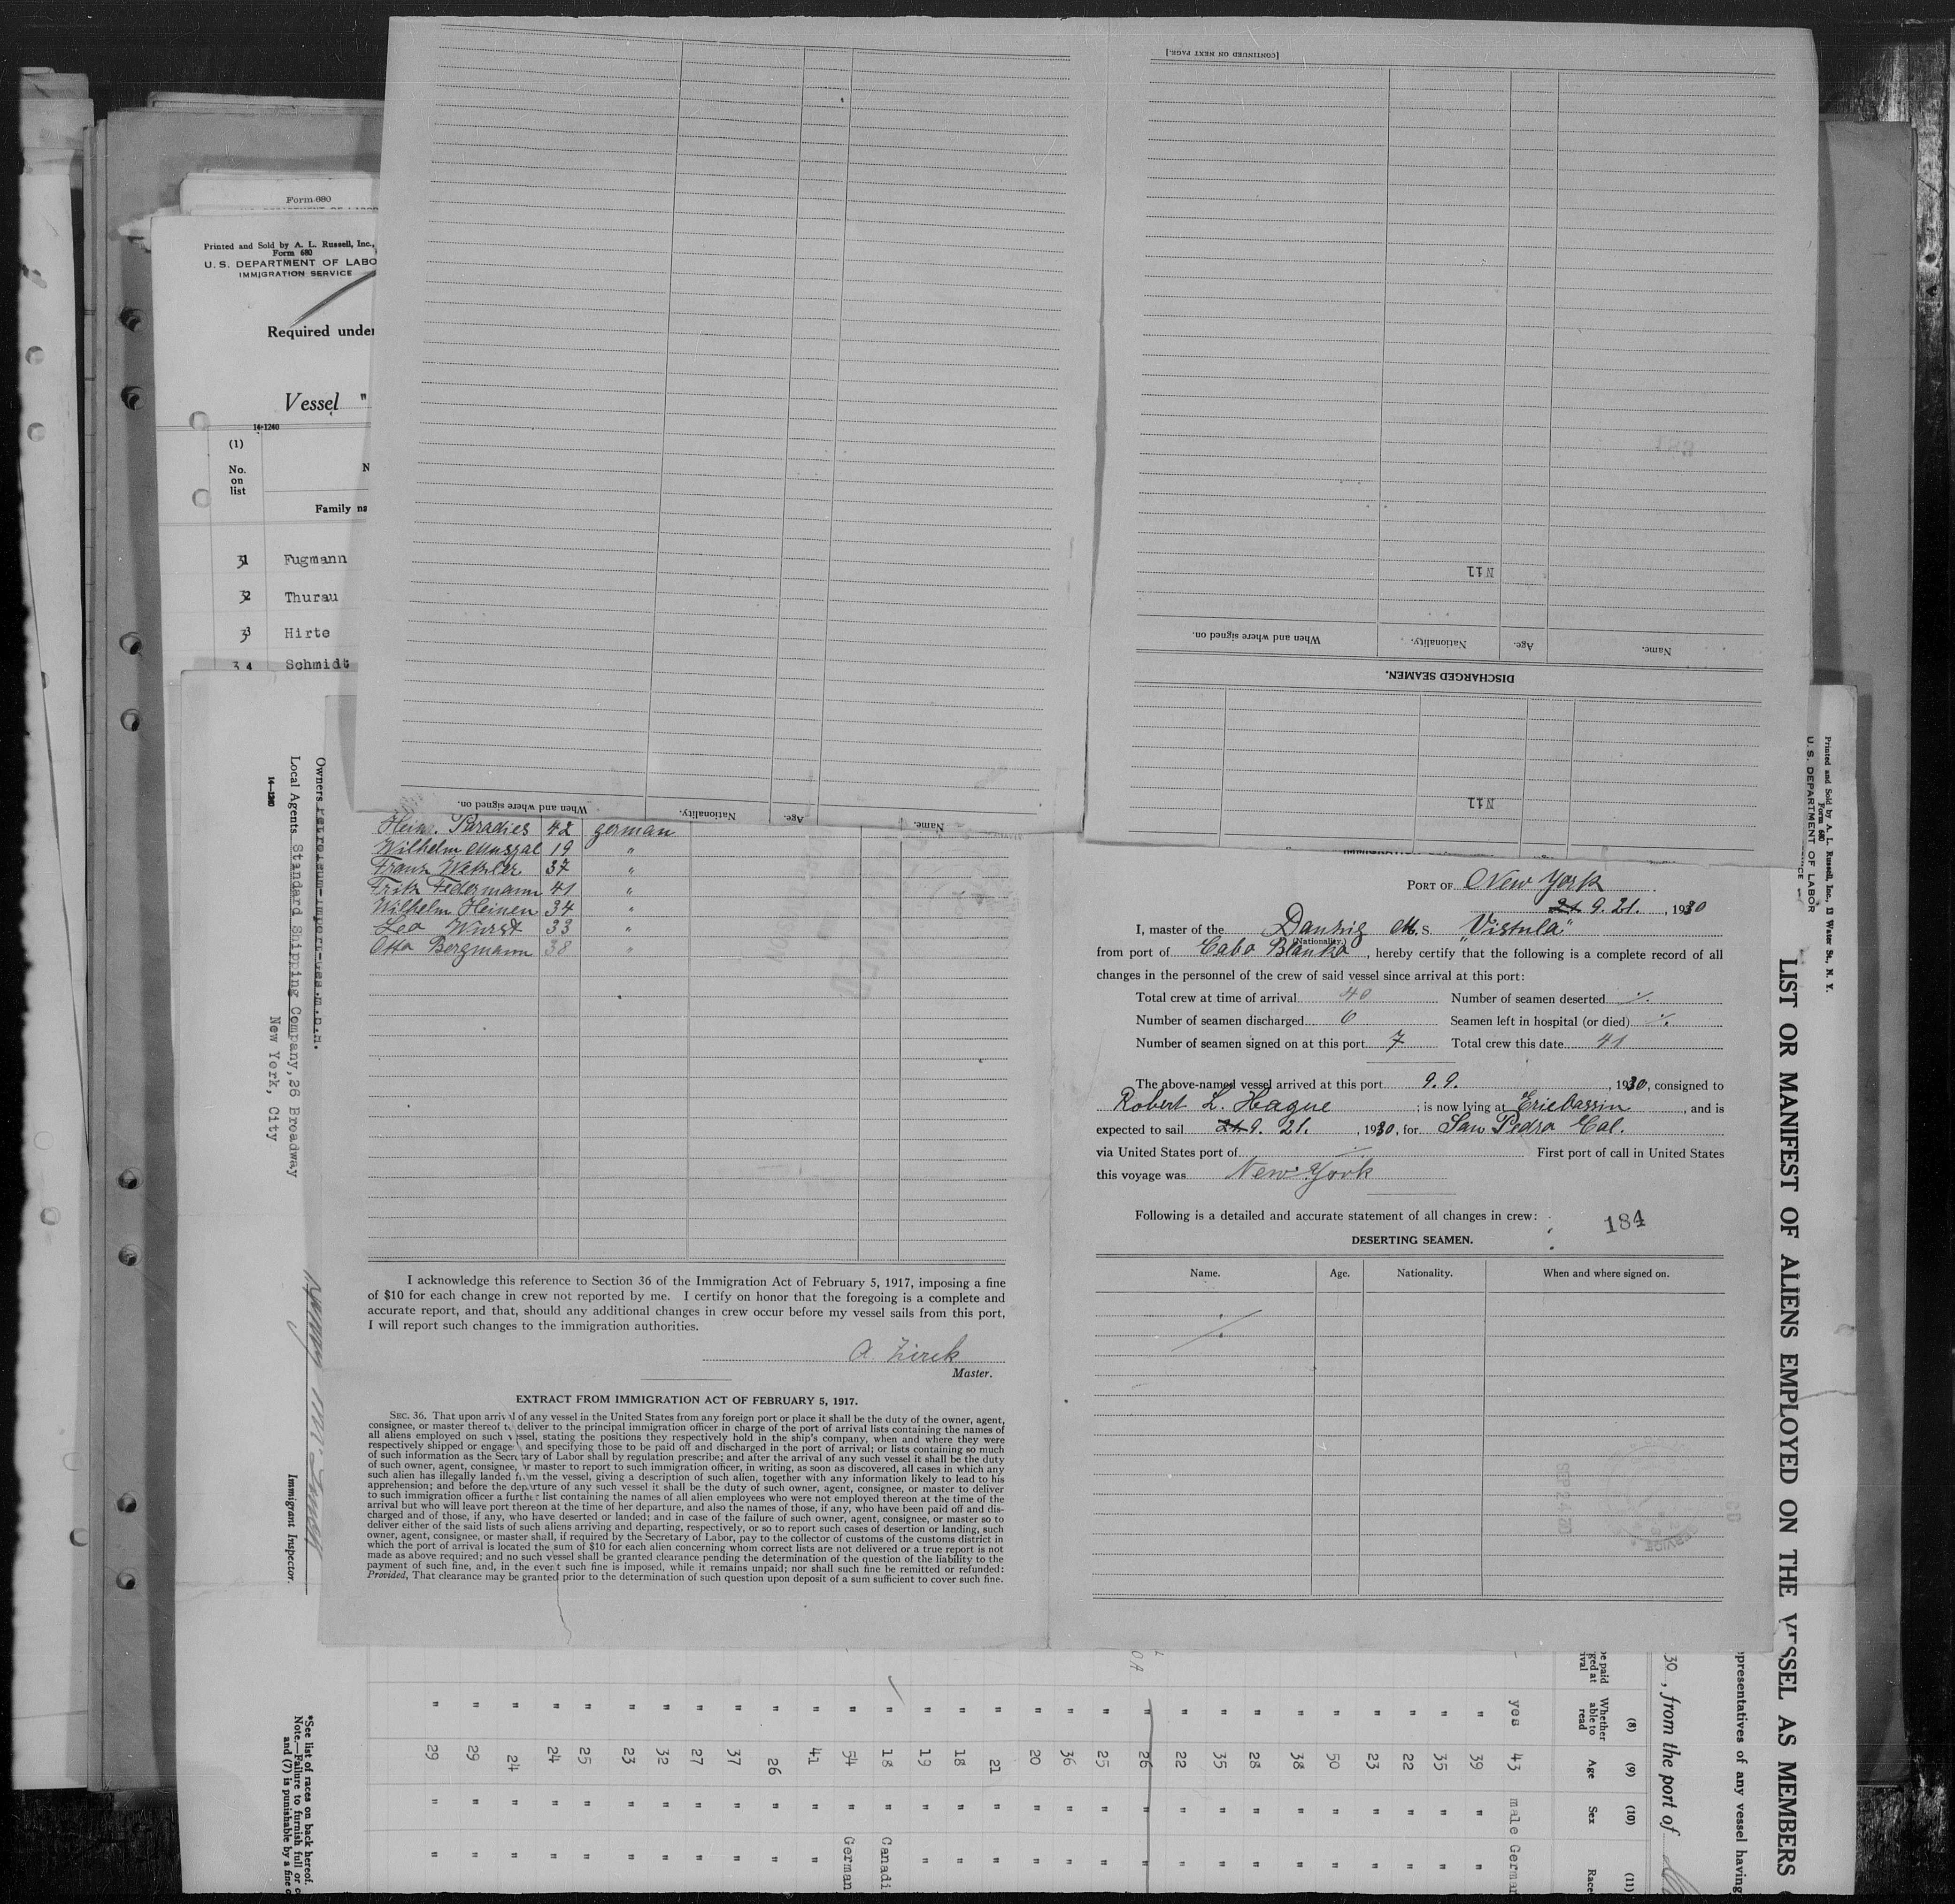 [CONTINUED ON NEXT PAGE.]
N11
When and where signed on. Nationality. Age. Name.
DISCHARGED SEAMEN.
N11
When and where signed on. Nationality. Age. Name.
Form 680
Printed and Sold by A. L. Russell, Inc.,
Form 680
U. S. DEPARTMENT OF LABO
IMMIGRATION SERVICE
Required under
Vessel "
14-1240
(1)
No.
on
list
Family na
31 Fugmann
32 Thurau
33 Hirte
34 Schmidt
Owners
Local Agents Standard Shipping Company, 26 Broadway
New York, City
14-1240
Immigrant Inspector.
*See list of races on back hereof.
Note.—Failure to furnish full or c
and (7) is punishable by a fine o
Hein. Paradies 42 german
Wilhelm 19 "
Franz 37 "
Fritz Federmann 41 "
Wilhelm Heinen 34 "
Leo Wurst 33 "
Otto Bergmann 38 "
I acknowledge this reference to Section 36 of the Immigration Act of February 5, 1917, imposing a fine
of $10 for each change in crew not reported by me. I certify on honor that the foregoing is a complete and
accurate report, and that, should any additional changes in crew occur before my vessel sails from this port,
I will report such changes to the immigration authorities.
A.
Master.
EXTRACT FROM IMMIGRATION ACT OF FEBRUARY 5, 1917.
SEC. 36. That upon arrival of any vessel in the United States from any foreign port or place it shall be the duty of the owner, agent,
consignee, or master thereof to deliver to the principal immigration officer in charge of the port of arrival lists containing the names of
all aliens employed on such vessel, stating the positions they respectively hold in the ship's company, when and where they were
respectively shipped or engaged and specifying those to be paid off and discharged in the port of arrival; or lists containing so much
of such information as the Secretary of Labor shall by regulation prescribe; and after the arrival of any such vessel it shall be the duty
of such owner, agent, consignee, or master to report to such immigration officer, in writing, as soon as discovered, all cases in which any
such alien has illegally landed from the vessel, giving a description of such alien, together with any information likely to lead to his
apprehension; and before the departure of any such vessel it shall be the duty of such owner, agent, consignee, or master to deliver
to such immigration officer a further list containing the names of all alien employees who were not employed thereon at the time of the
arrival but who will leave port thereon at the time of her departure, and also the names of those, if any, who have been paid off and dis-
charged and of those, if any, who have deserted or landed; and in case of the failure of such owner, agent, consignee, or master so to
deliver either of the said lists of such aliens arriving and departing, respectively, or so to report such cases of desertion or landing, such
owner, agent, consignee, or master shall, if required by the Secretary of Labor, pay to the collector of customs of the customs district in
which the port of arrival is located the sum of $10 for each alien concerning whom correct lists are not delivered or a true report is not
made as above required; and no such vessel shall be granted clearance pending the determination of the question of the liability to the
payment of such fine, and, in the event such fine is imposed, while it remains unpaid; nor shall such fine be remitted or refunded:
Provided, That clearance may be granted prior to the determination of such question upon deposit of a sum sufficient to cover such fine.
PORT OF New York
9. 21. , 1930
I, master of the Danzig M. S. "Vistula"
(Nationality.)
from port of Cabo Blanko , hereby certify that the following is a complete record of all
changes in the personnel of the crew of said vessel since arrival at this port:
Total crew at time of arrival 40 Number of seamen deserted ./.
Number of seamen discharged 6 Seamen left in hospital (or died) ./.
Number of seamen signed on at this port 7 Total crew this date 41
The above-named vessel arrived at this port 9. 9. , 1930, consigned to
Robert L. Hague ; is now lying at Eriebassin , and is
expected to sail 9. 21. , 1930, for San Pedro Cal.
via United States port of First port of call in United States
this voyage was New York
Following is a detailed and accurate statement of all changes in crew:
184
DESERTING SEAMEN.
Name. Age. Nationality. When and where signed on.
./.
Printed and Sold by A. L. Russell, Inc., 13 Water St., N. Y.
Form 680
U. S. DEPARTMENT OF LABOR
LIST OR MANIFEST OF ALIENS EMPLOYED ON THE VESSEL AS MEMBERS
presentatives of any vessel having
30 , from the port of
(8) (9) (10) (11)
Whether able to read Age Sex Race
yes 43 male German
" 39 " "
" 35 " "
" 22 " "
" 23 " "
" 50 " "
" 38 " "
" 28 " "
" 35 " "
" 22 " "
" 26 " "
" 25 " "
" 36 " "
" 20 " "
" 21 " "
" 18 " "
" 19 " "
" 18 " Canadi
" 54 " German
" 41 " "
" 26 " "
" 37 " "
" 27 " "
" 32 " "
" 23 " "
" 25 " "
" 24 " "
" 24 " "
" 29 " "
" 29 " "